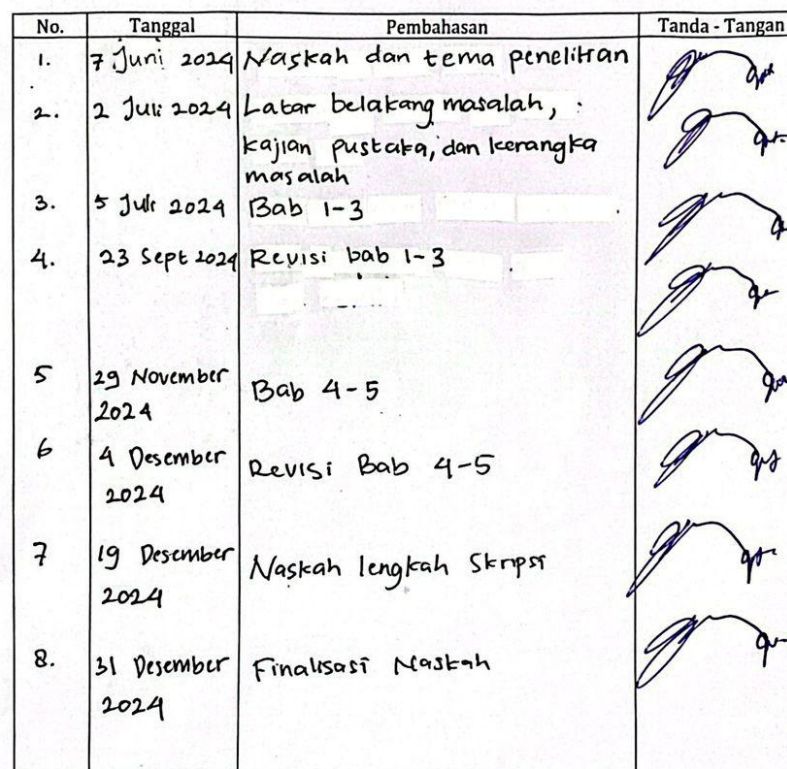 No. Tanggal Pembahasan Tanda - Tangan
1. 7 Juni 2024 Naskah dan tema penelitian
2. 2 Juli 2024 Latar belakang masalah,
kajian pustaka, dan kerangka
masalah
3. 5 Juli 2024 Bab 1-3
4. 23 Sept 2024 Revisi bab 1-3
5 29 November Bab 4-5
2024
6 4 Desember Revisi Bab 4-5
2024
7 19 Desember Naskah lengkah Skripsi
2024
8. 31 Desember Finalisasi Naskah
2024